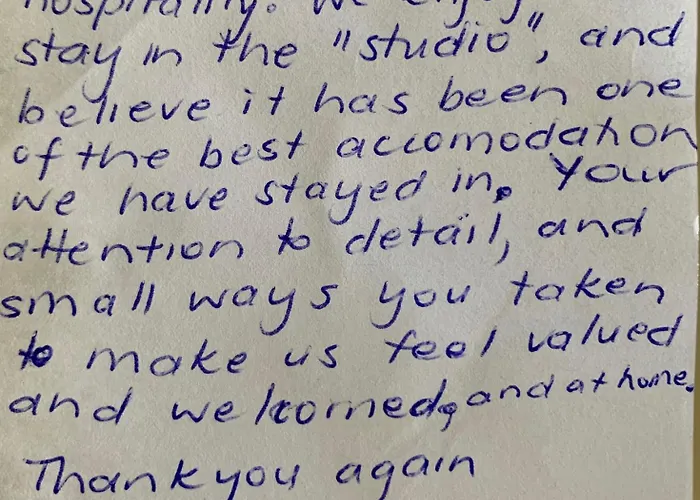 hospitality. We enjoy
stay in the "studio", and
believe it has been one
of the best accomodation
we have stayed in. Your
attention to detail, and
small ways you taken
to make us feel valued
and welcomed, and at home.
Thank you again